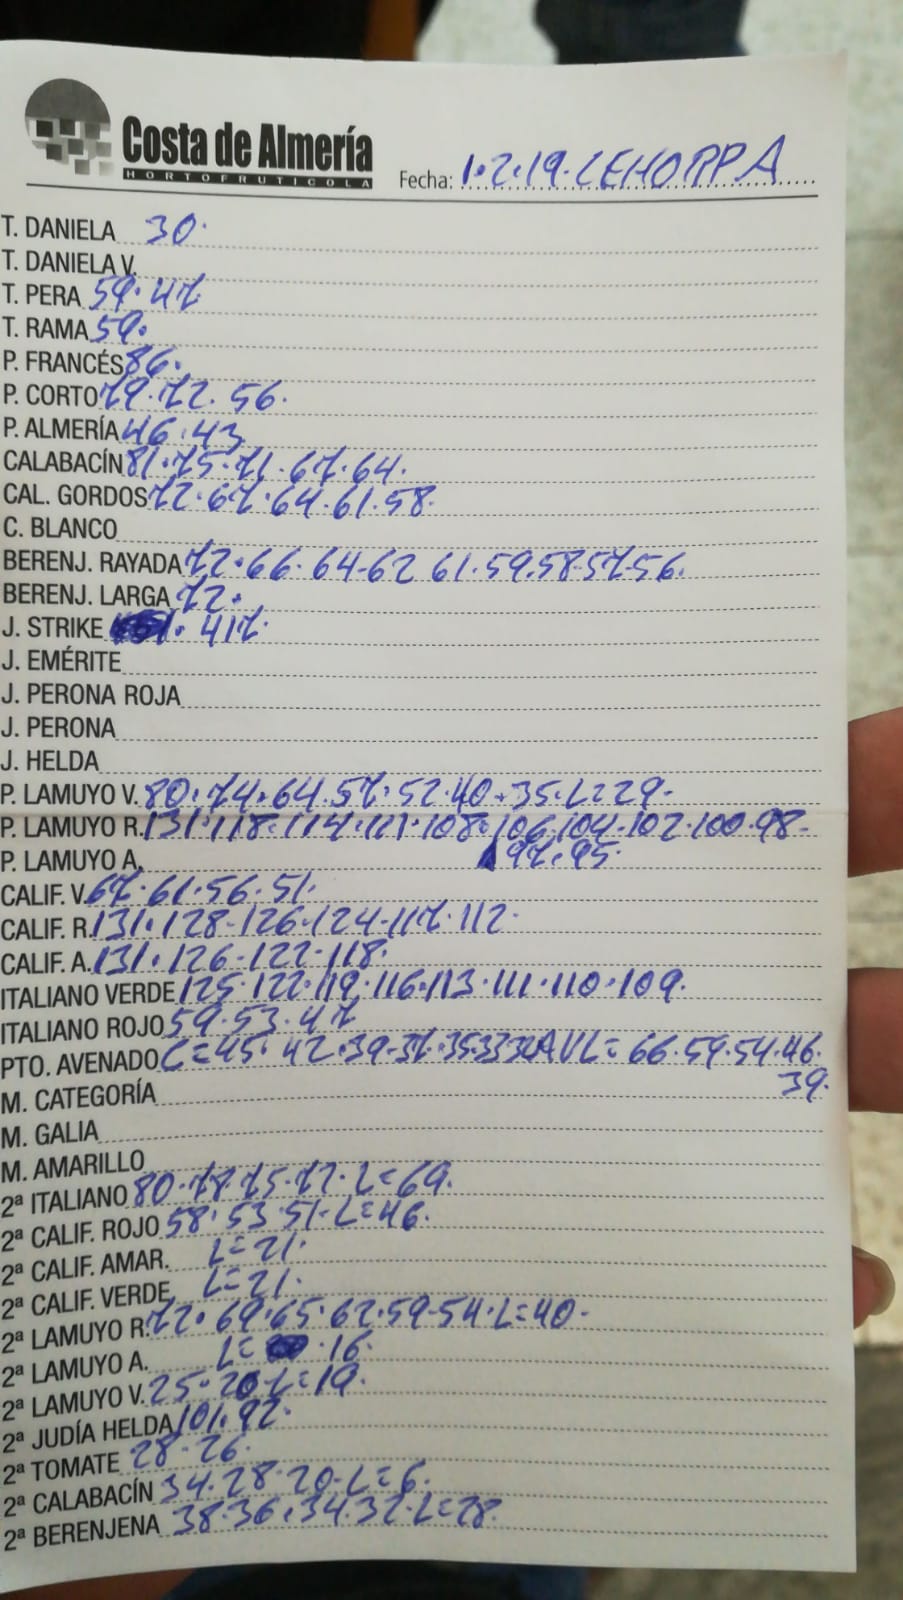 Costa de Almería
HORTOFRUTICOLA
Fecha: 1.2.19. CEHORPA
T. DANIELA 30.
T. DANIELA V.
T. PERA 59.47.
T. RAMA 59.
P. FRANCÉS 86.
P. CORTO 79.72.56.
P. ALMERÍA 46.43
CALABACÍN 81.75.71.67.64.
CAL. GORDOS 72.67.64.61.58.
C. BLANCO
BERENJ. RAYADA 72.66.64-62 61.59.58-57-56.
BERENJ. LARGA 72.
J. STRIKE 417.
J. EMÉRITE
J. PERONA ROJA
J. PERONA
J. HELDA
P. LAMUYO V. 80.74.64.57.52.40.35.L=29-
P. LAMUYO R. 131.118-114.111.108.106.104-102.100.98-
P. LAMUYO A. 97.95.
CALIF. V. 67.61.56.51.
CALIF. R. 131.128-126-124-117.112.
CALIF. A. 131.126-122-118.
ITALIANO VERDE 125.122.119.116.113.111.110.109.
ITALIANO ROJO 59.53.47
PTO. AVENADO C=45.42.39-37.35.33 AVL=66.59.54.46.
39.
M. CATEGORÍA
M. GALIA
M. AMARILLO
2ª ITALIANO 80.78.75.72-L=69.
2ª CALIF. ROJO 58.53.51-L=46.
2ª CALIF. AMAR. L=21.
2ª CALIF. VERDE L=21.
2ª LAMUYO R. 72.69.65.62.59-54.L=40-
2ª LAMUYO A. L= 16.
2ª LAMUYO V. 25.20-L=19.
2ª JUDÍA HELDA 101.92.
2ª TOMATE 28-26.
2ª CALABACÍN 34.28.20-L=6.
2ª BERENJENA 38.36.34.32-L=28.